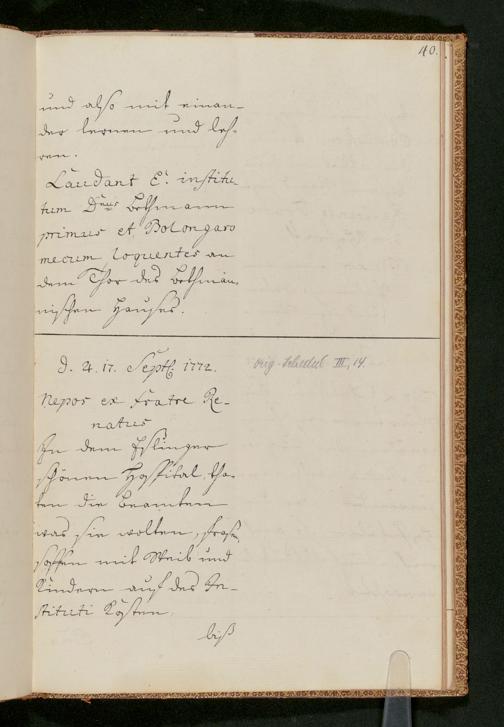 40.
und also mit einan-
der lernen und leh-
ren.
Laudant E. institu
tum Dnus Bethmann
primus et Bolongaro
mecum loquentes an
dem Thor des Bethmän-
nischen Hauses.
d. 4. 17. Septb. 1772.
orig. Schedul III, 14
Nepos ex fratre Re-
natus
In dem Eslinger
schönen Hospital tha-
ten die Beamten
was sie wolten,
soffen mit Weib und
Kindern auf des In-
stituti Kosten,
biß